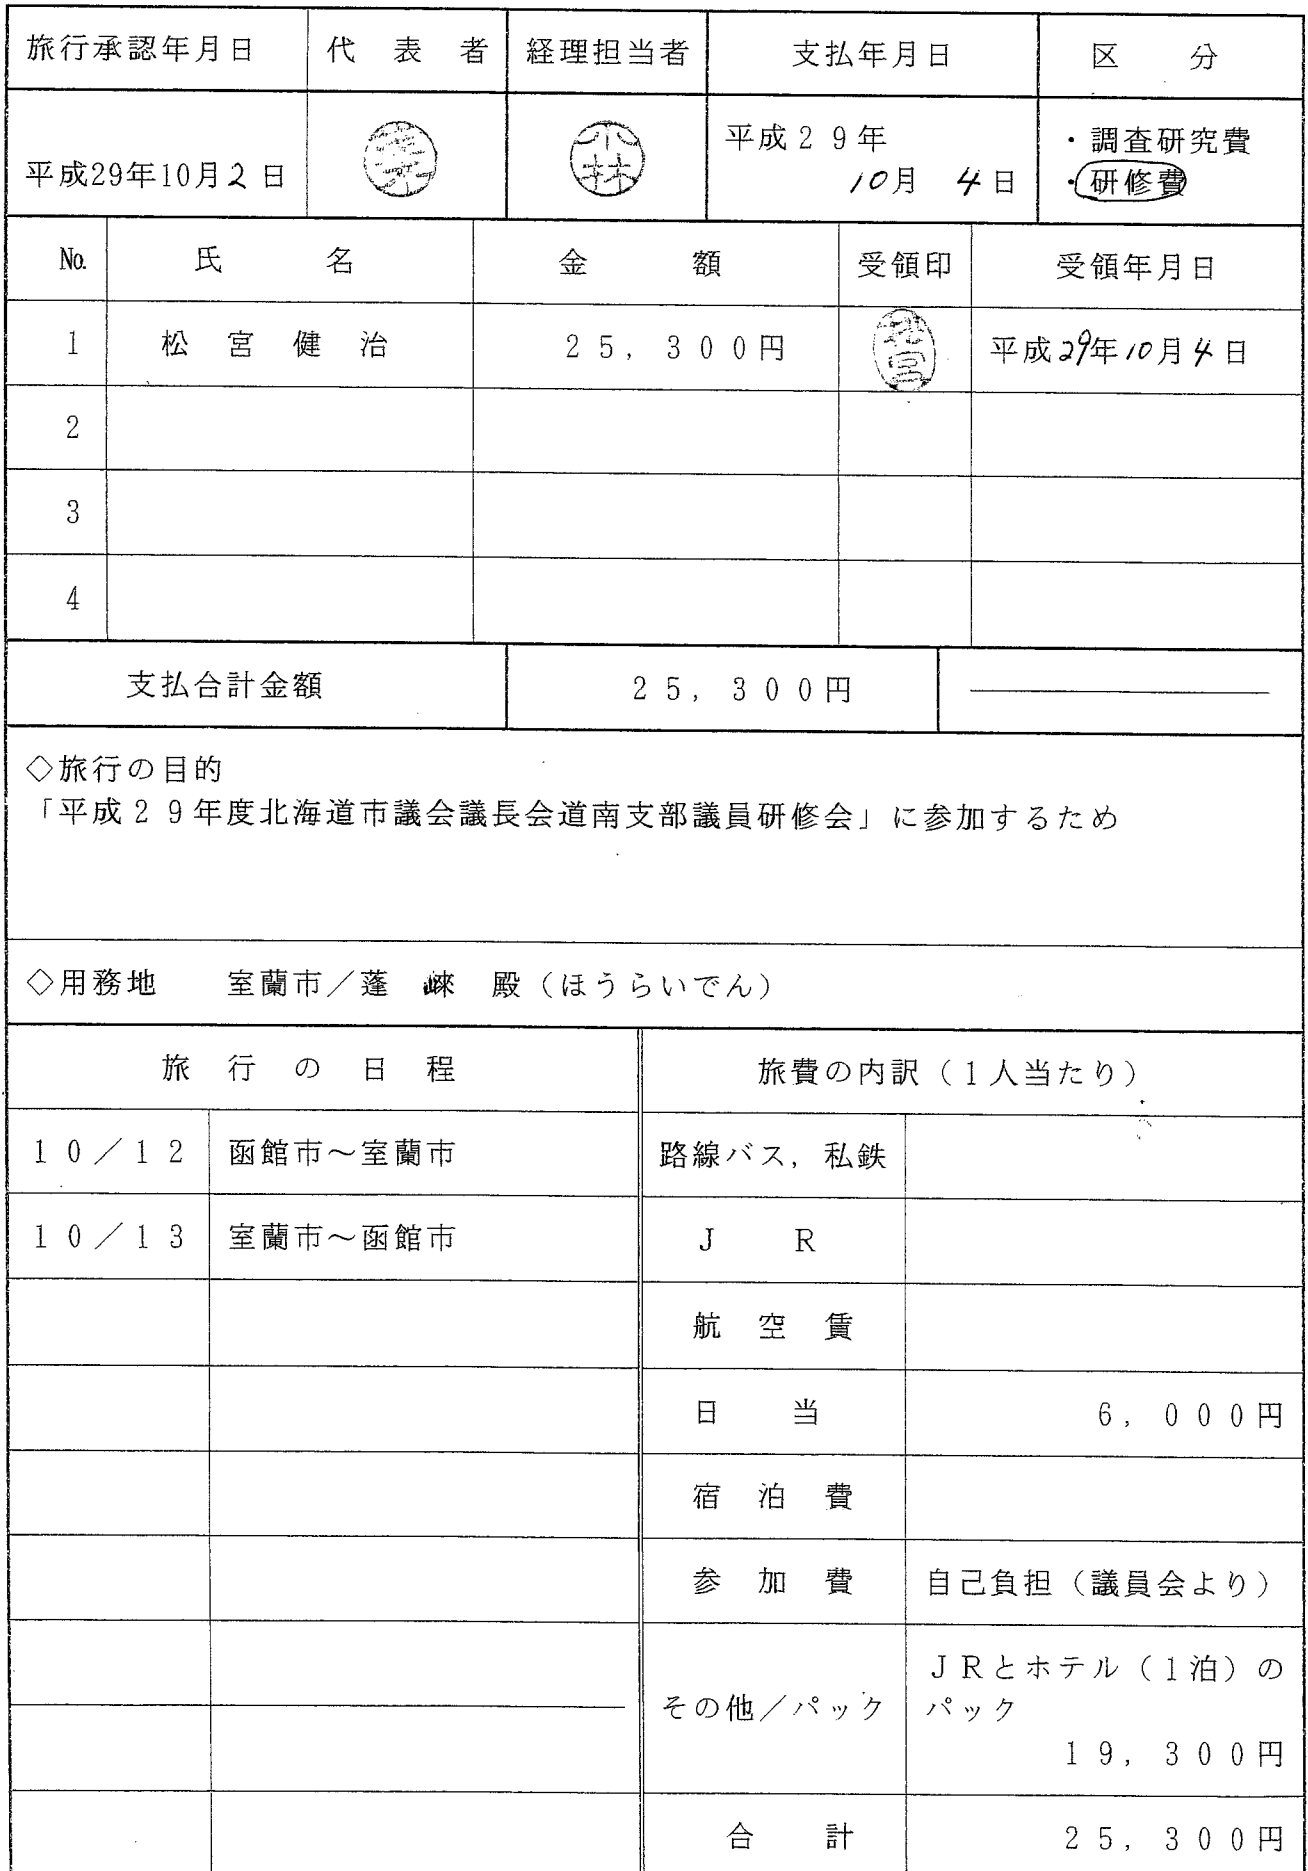 旅行承認年月日 代表者 経理担当者 支払年月日 区分
平成29年10月2日 小林 平成29年10月4日 ・調査研究費
・研修費
No. 氏名 金額 受領印 受領年月日
1 松宮健治 25,300円 松宮 平成29年10月4日
2
3
4
支払合計金額 25,300円
◇旅行の目的
「平成29年度北海道市議会議長会道南支部議員研修会」に参加するため
◇用務地 室蘭市/蓬崍殿(ほうらいでん)
旅行の日程 旅費の内訳(1人当たり)
10/12 函館市~室蘭市 路線バス,私鉄
10/13 室蘭市~函館市 JR
航空賃
日当 6,000円
宿泊費
参加費 自己負担(議員会より)
その他/パック JRとホテル(1泊)の
パック
19,300円
合計 25,300円